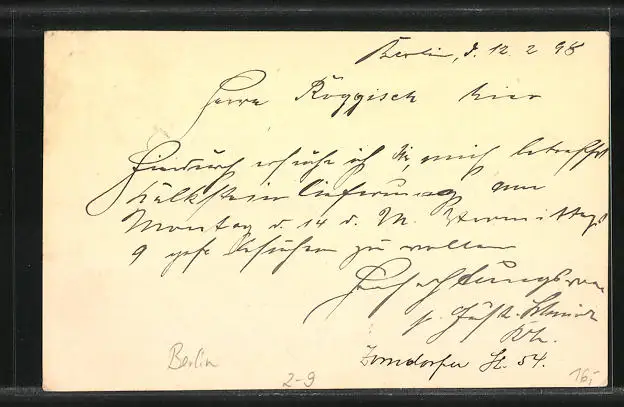 Berlin, d. 12. 2 98
Herrn Röggisch hier
Hierdurch ersuche ich Sie, mich betreffs
Kalksteinlieferung am
Montag d. 14 d. M. Vormittags
9 Uhr besuchen zu wollen
Hochachtungsvoll
Schmidt
Zorndorfer St. 54.
Berlin
2-9
16,-